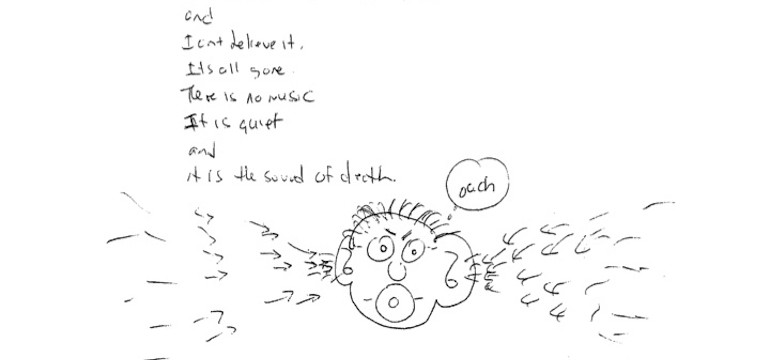 and
I cant believe it.
Its all gone.
There is no music
It is quiet
and
it is the sound of death.
ouch